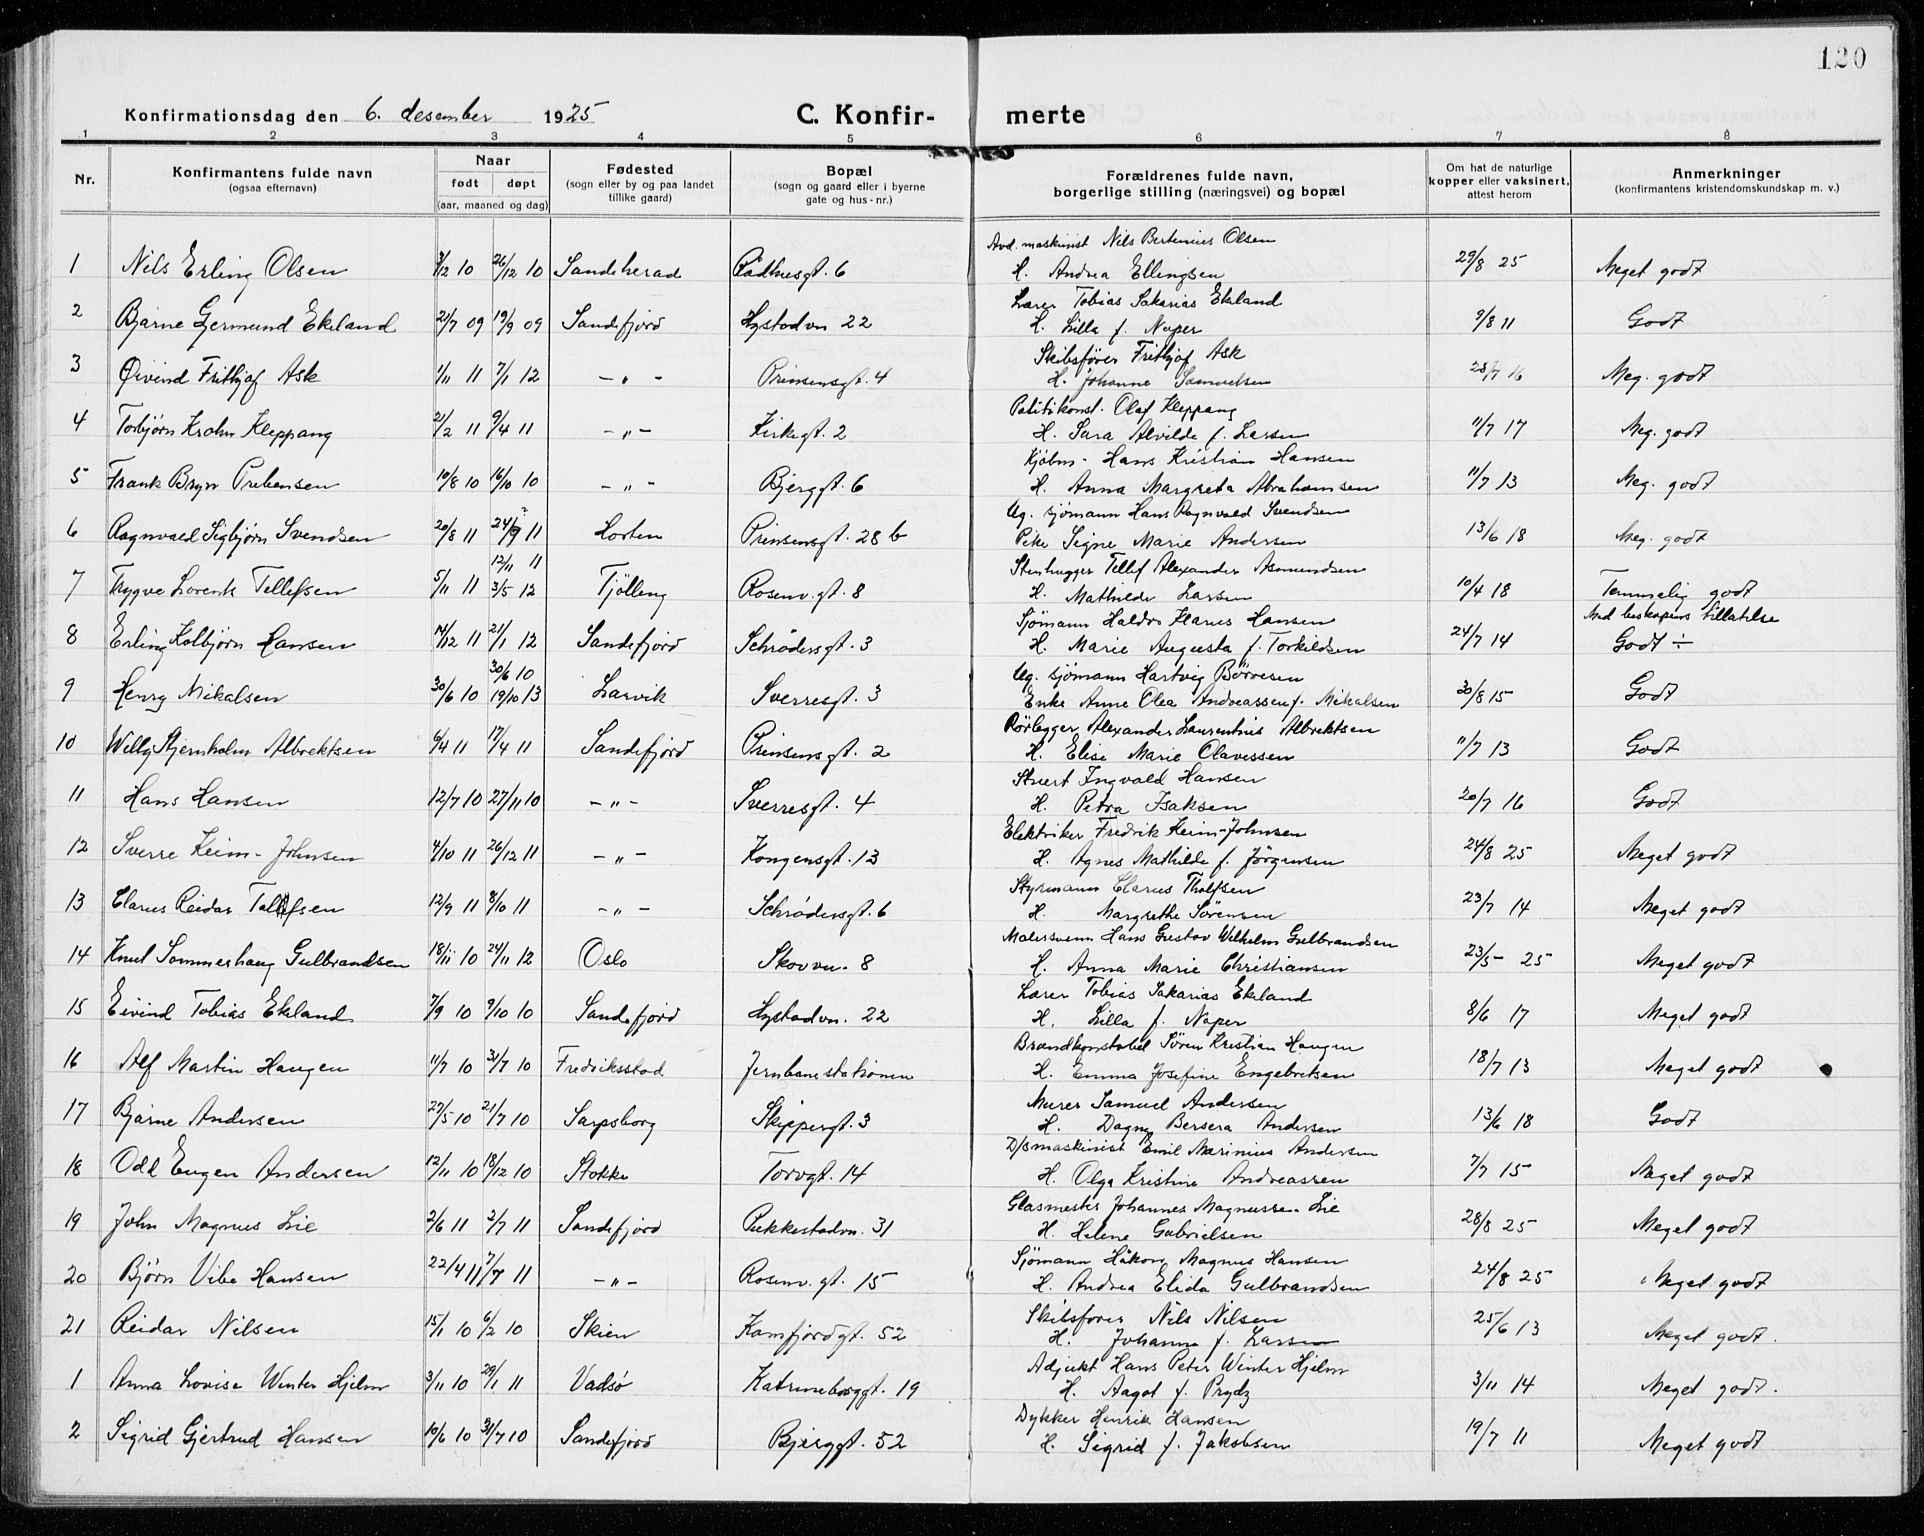 120
Konfirmationsdag den 6. desember 1925 C. Konfir- merte
1 2 3 4 5 6 7 8
Nr. Konfirmantens fulde navn (ogsaa efternavn) Naar født døpt (aar, maaned og dag) Fødested (sogn eller by og paa landet tillike gaard) Bopæl (sogn og gaard eller i byerne gate og hus-nr.) Forældrenes fulde navn, borgerlige stilling (næringsvei) og bopæl Om hat de naturlige kopper eller vaksinert, attest herom Anmerkninger (konfirmantens kristendomskundskap m. v.)
Avd. maskinist Nils Bertinius Olsen
1 Nils Erling Olsen /12 10 26/12 10 Sandeherad Rådhusgt. 6 H. Andrea Ellingsen 29/8 25 Meget godt
Lærer Tobias Sakarias Ekeland
2 Bjarne Gjermund Ekeland 21/7 09 19/9 09 Sandefjord Hystadvn 22 H. Lilla f. Naper 9/8 11 Godt
Skibsfører Frithjof Ask
3 Øivind Frithjof Ask 1/11 11 7/1 12 – „ – Prinsensgt. 4 H. Johanne Samuelsen 25/7 16 Meg. godt
Politikonst. Olaf Kleppang
4 Torbjørn Krohn Kleppang 21/2 11 9/4 11 – „ – Kirkegt. 2 H. Sara Alvilde f. Larsen 11/7 17 Meg. godt
Kjøbm. Hans Kristian Hansen
5 Frank Bryn Prebensen 10/8 10 16/10 10 – „ – Bjerggt. 6 H. Anna Margreta Abrahamsen 11/7 13 Meg. godt
Ug. sjømann Hans Ragnvald Svendsen
6 Ragnvald Sigbjørn Svendsen 20/8 11 24/9 11 Horten Prinsensgt. 28 b Pike Signe Marie Andersen 13/6 18 Meg. godt
12/11 11 Stenhugger Tellef Alexander Asmundsen
7 Trygve Lorents Tellefsen 5/11 11 3/5 12 Tjølling Rosenv. gt. 8 H. Mathilde Larsen 10/4 18 Temmelig godt
Sjømann Haldor Klarius Hansen Med biskopens tillatelse
8 Erling Kolbjørn Hansen /12 11 21/1 12 Sandefjord Schrødersgt. 3 H. Marie Augusta f. Torkildsen 24/7 14 Godt ÷
30/6 10 Ug. sjømann Hartvig Børresen
9 Henry Mikalsen 30/6 10 19/10 13 Larvik Sverresgt. 3 Enke Anne Olea Andreassen f. Mikalsen 30/8 15 Godt
Rørlegger Alexander Laurentius Albrektsen
10 Willy Stjernholm Albrektsen 6/4 11 17/4 11 Sandefjord Prinsensgt. 2 H. Elise Marie Olavessen 11/7 13 Godt
Stuert Ingvald Hansen
11 Hans Hansen 12/7 10 27/11 10 – „ – Sverresgt. 4 H. Petra Isaksen 20/7 16 Godt
Elektriker Fredrik Keim-Johnsen
12 Sverre Keim-Johnsen 4/10 11 26/12 11 – „ – Kongensgt. 13 H. Agnes Mathilde f. Jørgensen 24/8 25 Meget godt
Styrmann Clarus Tholfsen
13 Clarus Reidar Tollefsen 12/9 11 8/10 11 – „ – Schrødersgt. 6 H. Margrethe Sørensen 23/7 14 Meget godt
Malersvenn Hans Gustav Wilhelm Gulbrandsen
14 Knut Sommerhaug Gulbrandsen 18/11 10 24/11 12 Oslo Skovvn. 8 H. Anna Marie Christiansen 23/5 – 25 Meget godt
Lærer Tobias Sakarias Ekeland
15 Eivind Tobias Ekeland 7/9 10 9/10 10 Sandefjord Hystadvn. 22 H. Lilla f. Naper 8/6 17 Meget godt
Brandkonstabel Søren Kristian Haugen
16 Alf Martin Haugen 11/7 10 31/7 10 Fredriksstad Jernbanestationen H. Emma Josefine Engebretsen 18/7 13 Meget godt
Murer Samuel Andersen
17 Bjarne Andersen 27/5 10 21/7 10 Sarpsborg Skippergt. 3 H. Dagny Bersera Andersen 13/6 18 Godt
D/s maskinist Emil Marinius Andersen
18 Odd Eugen Andersen 12/11 10 18/12 10 Stokke Torvgt. 14 H. Olga Kristine Andreassen 7/7 15 Meget godt
Glasmester Johannes Magnussen Lie
19 John Magnus Lie 2/6 11 2/7 11 Sandefjord Pukkestadvn. 31 H. Helene Gabrielsen 28/8 25 Meget godt
Sjømann Håkon Magnus Hansen
20 Bjørn Vibe Hansen 22/4 11 7/7 11 – „ – Rosenv. gt. 15 H. Andrea Elida Gulbrandsen 24/8 25 Meget godt
Skibsfører Nils Nilsen
21 Reidar Nilsen 15/1 10 6/2 10 Skien Kamfjordgt. 52 H. Johanne f. Larsen 25/6 13 Meget godt.
Adjukt Hans Peter Winter Hjelm
1 Anna Lovise Winter Hjelm 3/11 10 29/1 11 Vadsø Katrineborggt. 19 H. Aagot f. Prydz 3/11 14 Meget godt.
Dykker Henrik Hansen
2 Sigrid Gjertrud Hansen 10/6 10 31/7 10 Sandefjord Bjerggt. 52 H. Sigrid f. Jakobsen 19/7 11 Meget godt